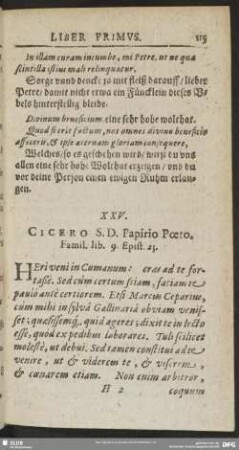 LIBER PRIMVS. 115
In illam curam incumbe, mi Petre, ut ne qua
scintilla istius mali relinquatur.
Sorge vnnd denck: ja mit fleiß darauff/ lieber
Petre/ damit nicht etwa ein Füncklein dieses V-
bels hinterstellig bleibe.
Divinum beneficium eine sehr hohe wolthat.
Quod si erit factum, nos omnes divino beneficio
affeceris, & ipse æternam gloriam consequere,
Welches/ so es geschehen wird/ wirst du vns
allen eine sehr hohe Wolthat erzeigen/ vnd du
vor deine Person einen ewigen Ruhm erlan-
gen.
XXV.
CICERO S.D. Papirio Pœto,
Famil. lib. 9. Epist. 23.
HEri veni in Cumanum: cras ad te for-
tasse. Sed cùm certum sciam, faciam te
paulò antè certiorem. Etsi Marcus Ceparius,
cùm mihi in sylvâ Gallinariâ obviam venis-
set; quæsissemq́, quid ageres; dixit te in lecto
esse, quòd ex pedibus laborares. Tuli scilicet
molestè, ut debui. Sed tamen constitui ad te
venire, ut & viderem te, & viserem,
& cœnarem etiam. Non enim arbitror,
H 2 coquum
SLUB
DFG